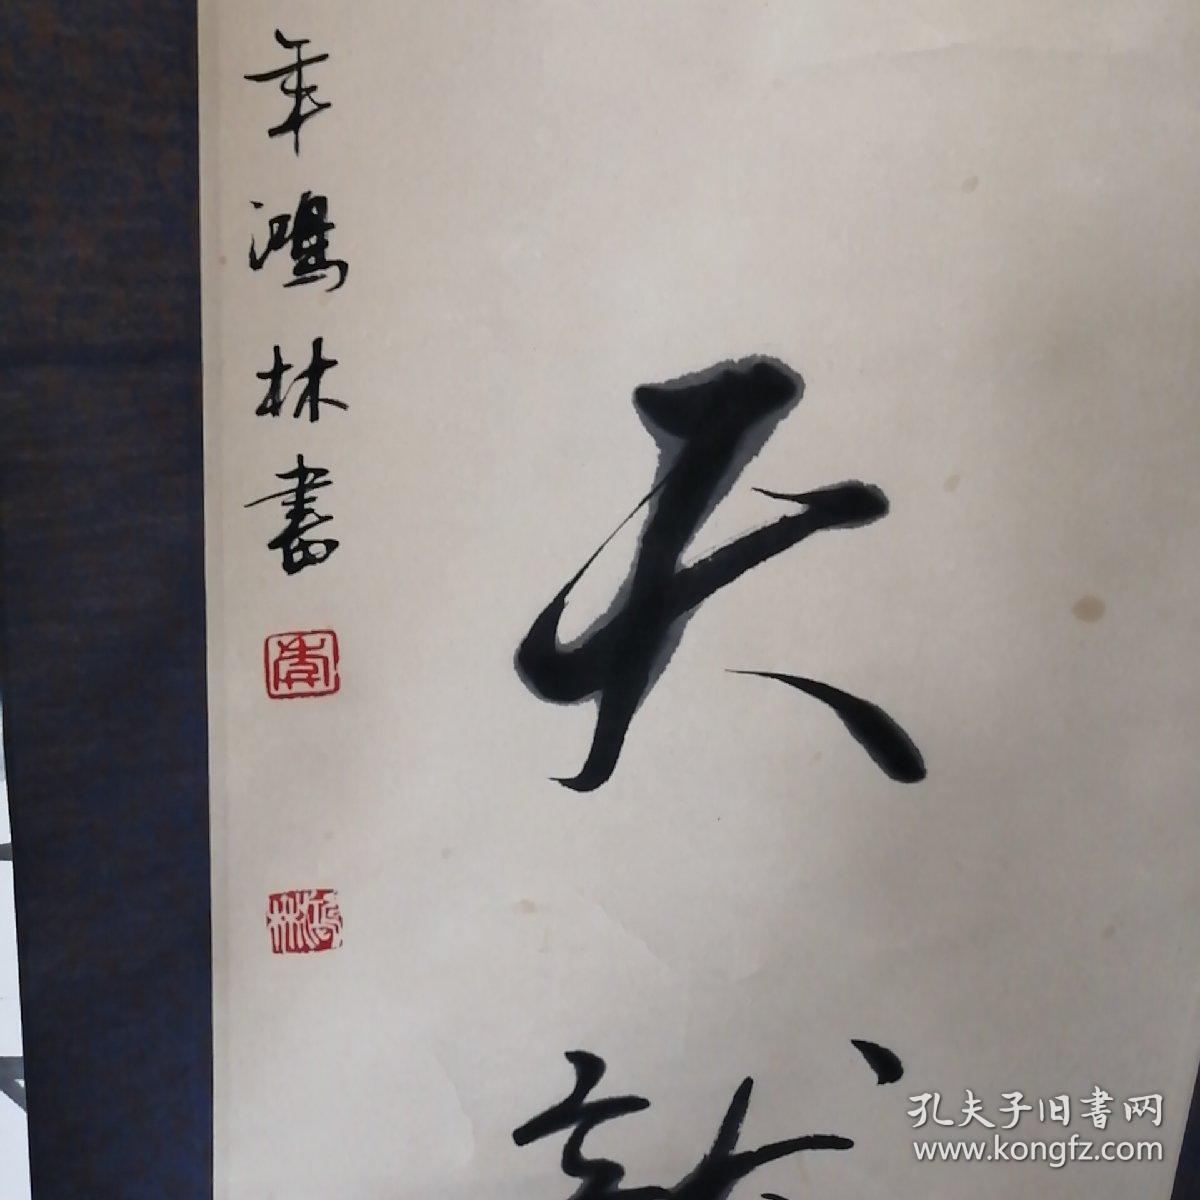 天
年鸿林書
李
鸿林
孔夫子旧書网
www.kongfz.com